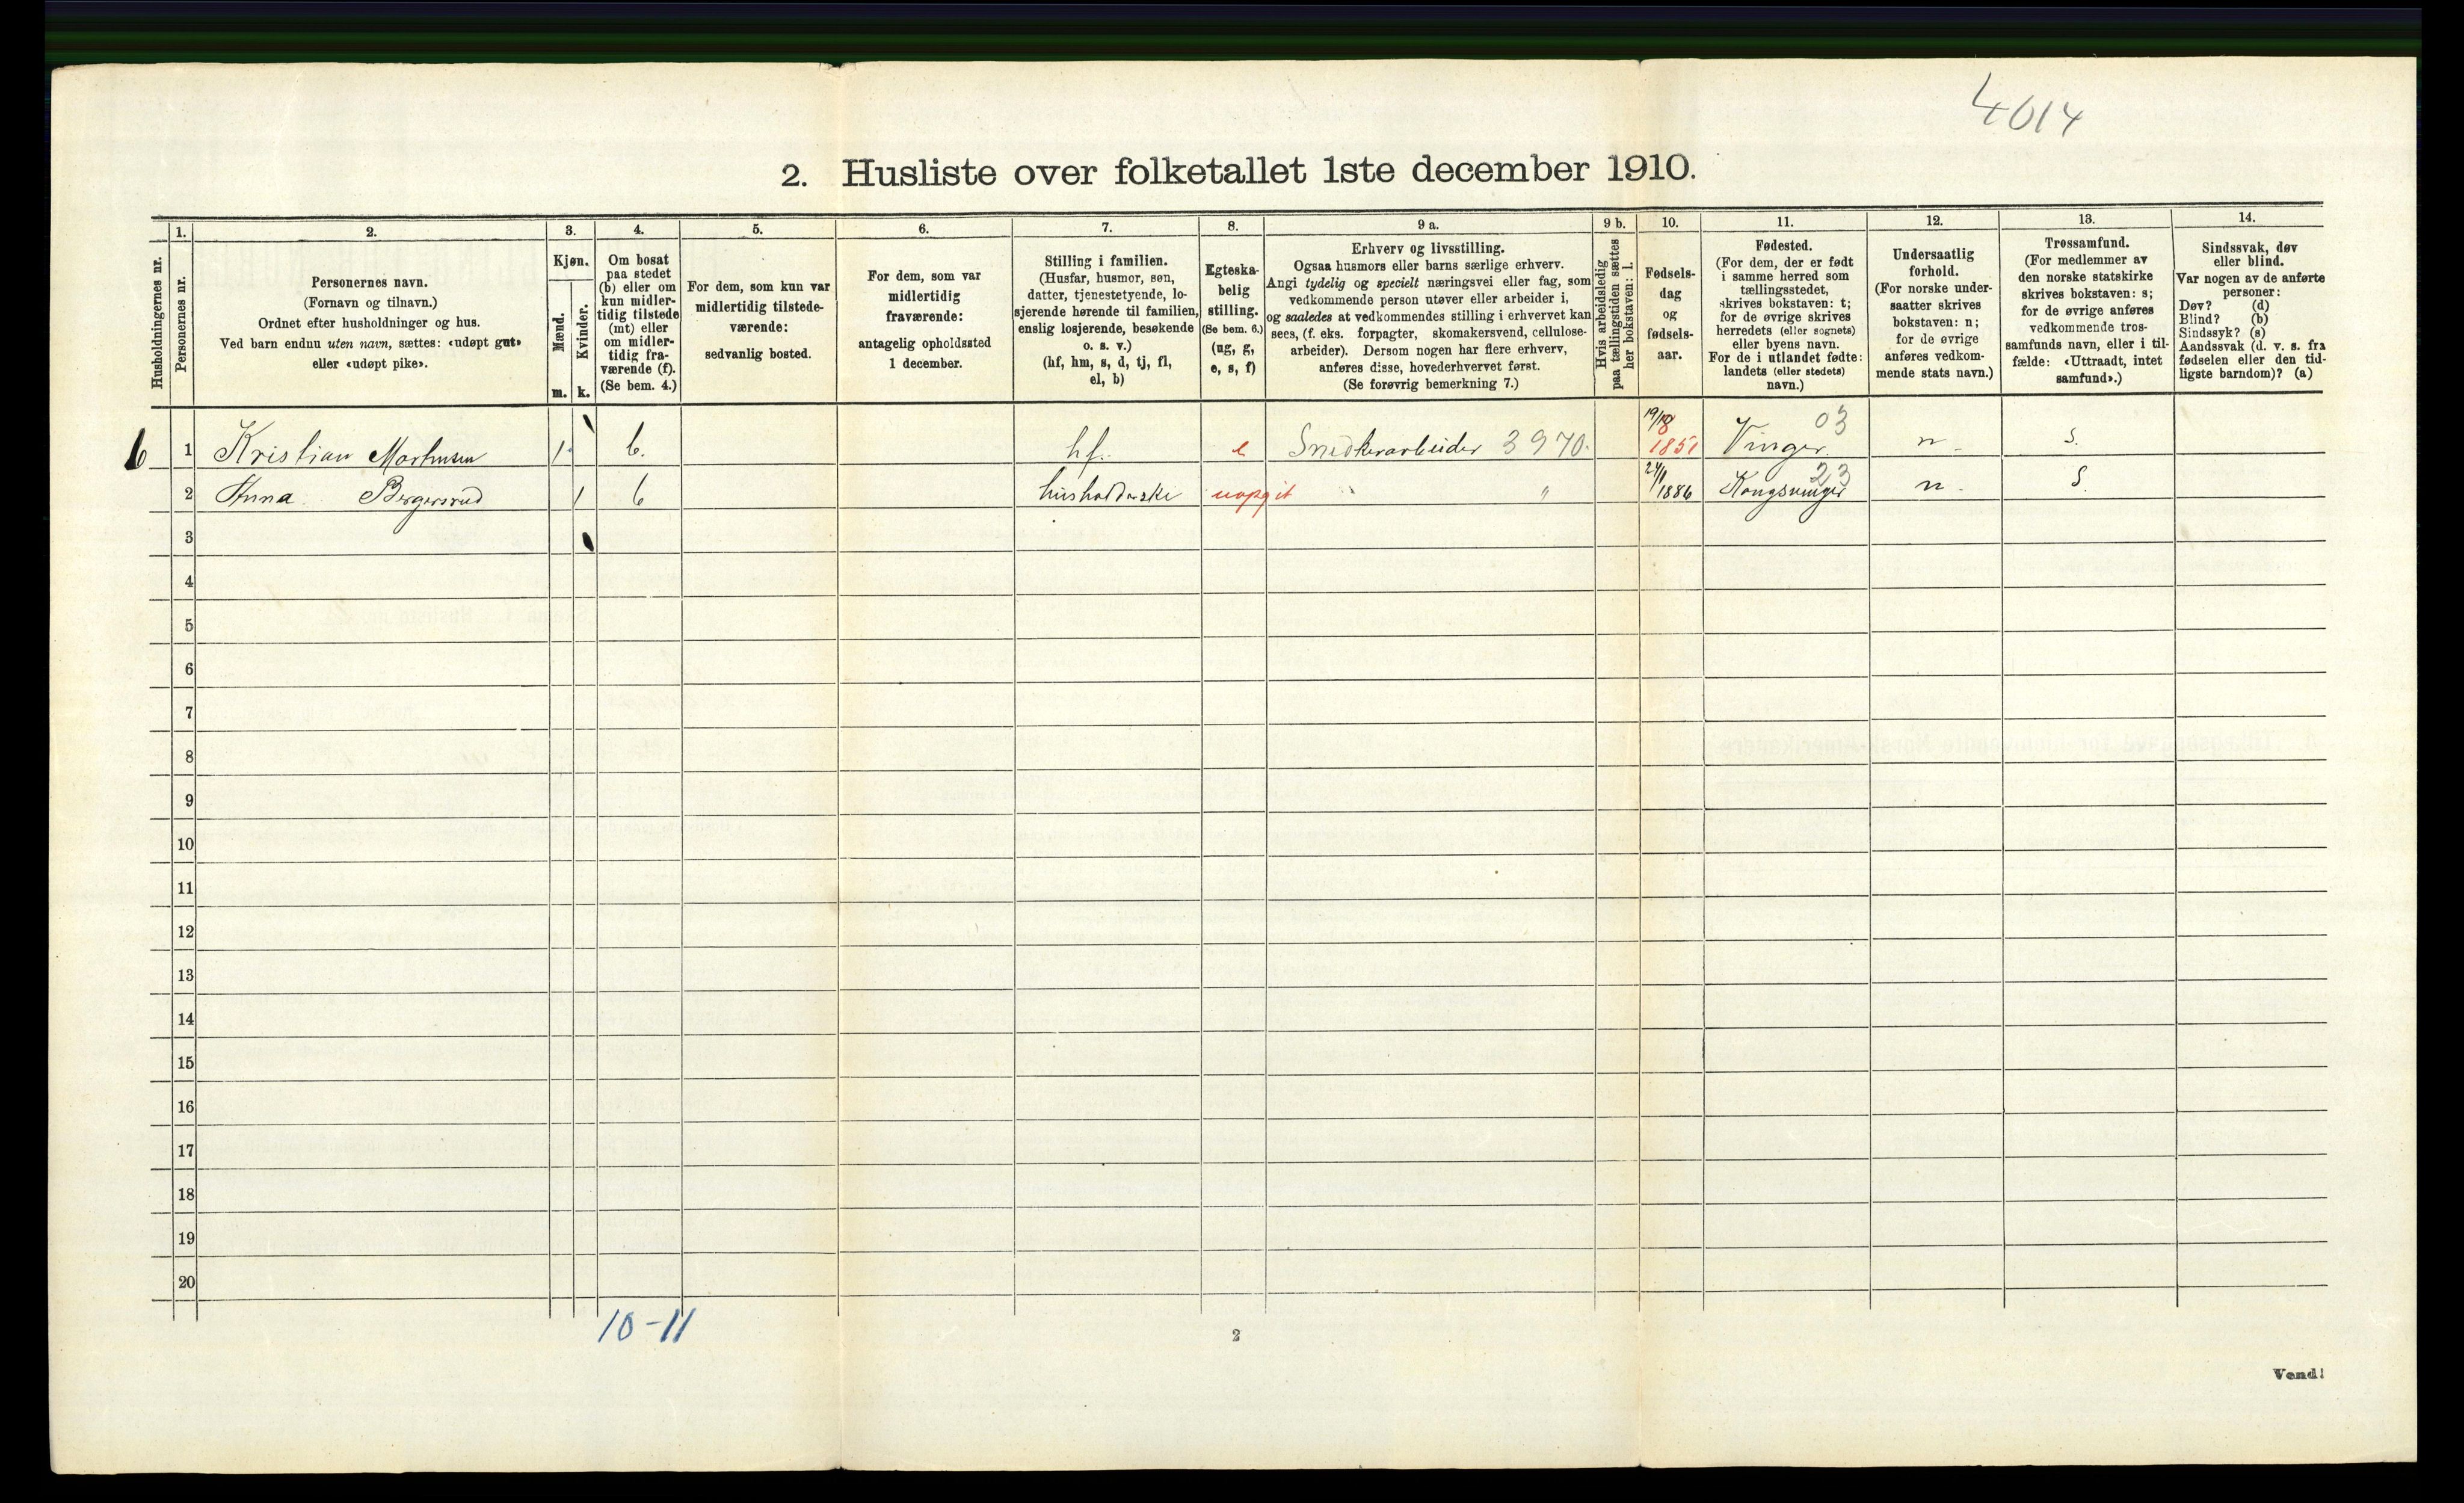 4014
2. Husliste over folketallet 1ste december 1910.
Husholdningernes nr.
1.
Personernes nr.
2.
Personernes navn.
(Fornavn og tilnavn.)
Ordnet efter husholdninger og hus.
Ved barn endnu uten navn, sættes: «udøpt gut»
eller «udøpt pike».
3.
Kjøn.
Mænd.
Kvinder.
m. k.
4.
Om bosat
paa stedet
(b) eller om
kun midler-
tidig tilstede
(mt) eller
om midler-
tidig fra-
værende (f).
(Se bem. 4.)
5.
For dem, som kun var
midlertidig tilstede-
værende:
sedvanlig bosted.
6.
For dem, som var
midlertidig
fraværende:
antagelig opholdssted
1 december.
7.
Stilling i familien.
(Husfar, husmor, søn,
datter, tjenestetyende, lo-
sjerende hørende til familien,
enslig losjerende, besøkende
o. s. v.)
(hf, hm, s, d, tj, fl,
el, b)
8.
Egteska-
belig
stilling.
(Se bem. 6.)
(ug, g,
e, s, f)
9 a.
Erhverv og livsstilling.
Ogsaa husmors eller barns særlige erhverv.
Angi tydelig og specielt næringsvei eller fag, som
vedkommende person utøver eller arbeider i,
og saaledes at vedkommendes stilling i erhvervet kan
sees, (f. eks. forpagter, skomakersvend, cellulose-
arbeider). Dersom nogen har flere erhverv,
anføres disse, hovederhvervet først.
(Se forøvrig bemerkning 7.)
9 b.
Hvis arbeidsledig
paa tællingstiden sættes
her bokstaven: l.
10.
Fødsels-
dag
og
fødsels-
aar.
11.
Fødested.
(For dem, der er født
i samme herred som
tællingsstedet,
skrives bokstaven: t;
for de øvrige skrives
herredets (eller sognets)
eller byens navn.
For de i utlandet fødte:
landets (eller stedets)
navn.)
12.
Undersaatlig
forhold.
(For norske under-
saatter skrives
bokstaven: n;
for de øvrige
anføres vedkom-
mende stats navn.)
13.
Trossamfund.
(For medlemmer av
den norske statskirke
skrives bokstaven: s;
for de øvrige anføres
vedkommende tros-
samfunds navn, eller i til-
fælde: «Uttraadt, intet
samfund».)
14.
Sindssvak, døv
eller blind.
Var nogen av de anførte
personer:
Døv? (d)
Blind? (b)
Sindssyk? (s)
Aandssvak (d. v. s. fra
fødselen eller den tid-
ligste barndom)? (a)
6 1 Kristian Mortensen 1 b. hf. e Snedkerarbeider 3970. 1851 Vinger 03 n s.
2 Anna Bergersrud 1 b husholderske uopgit " " 1886 Kongsvinger 23 n s.
3
4
5
6
7
8
9
10
11
12
13
14
15
16
17
18
19
20
10-11
2
Vend!